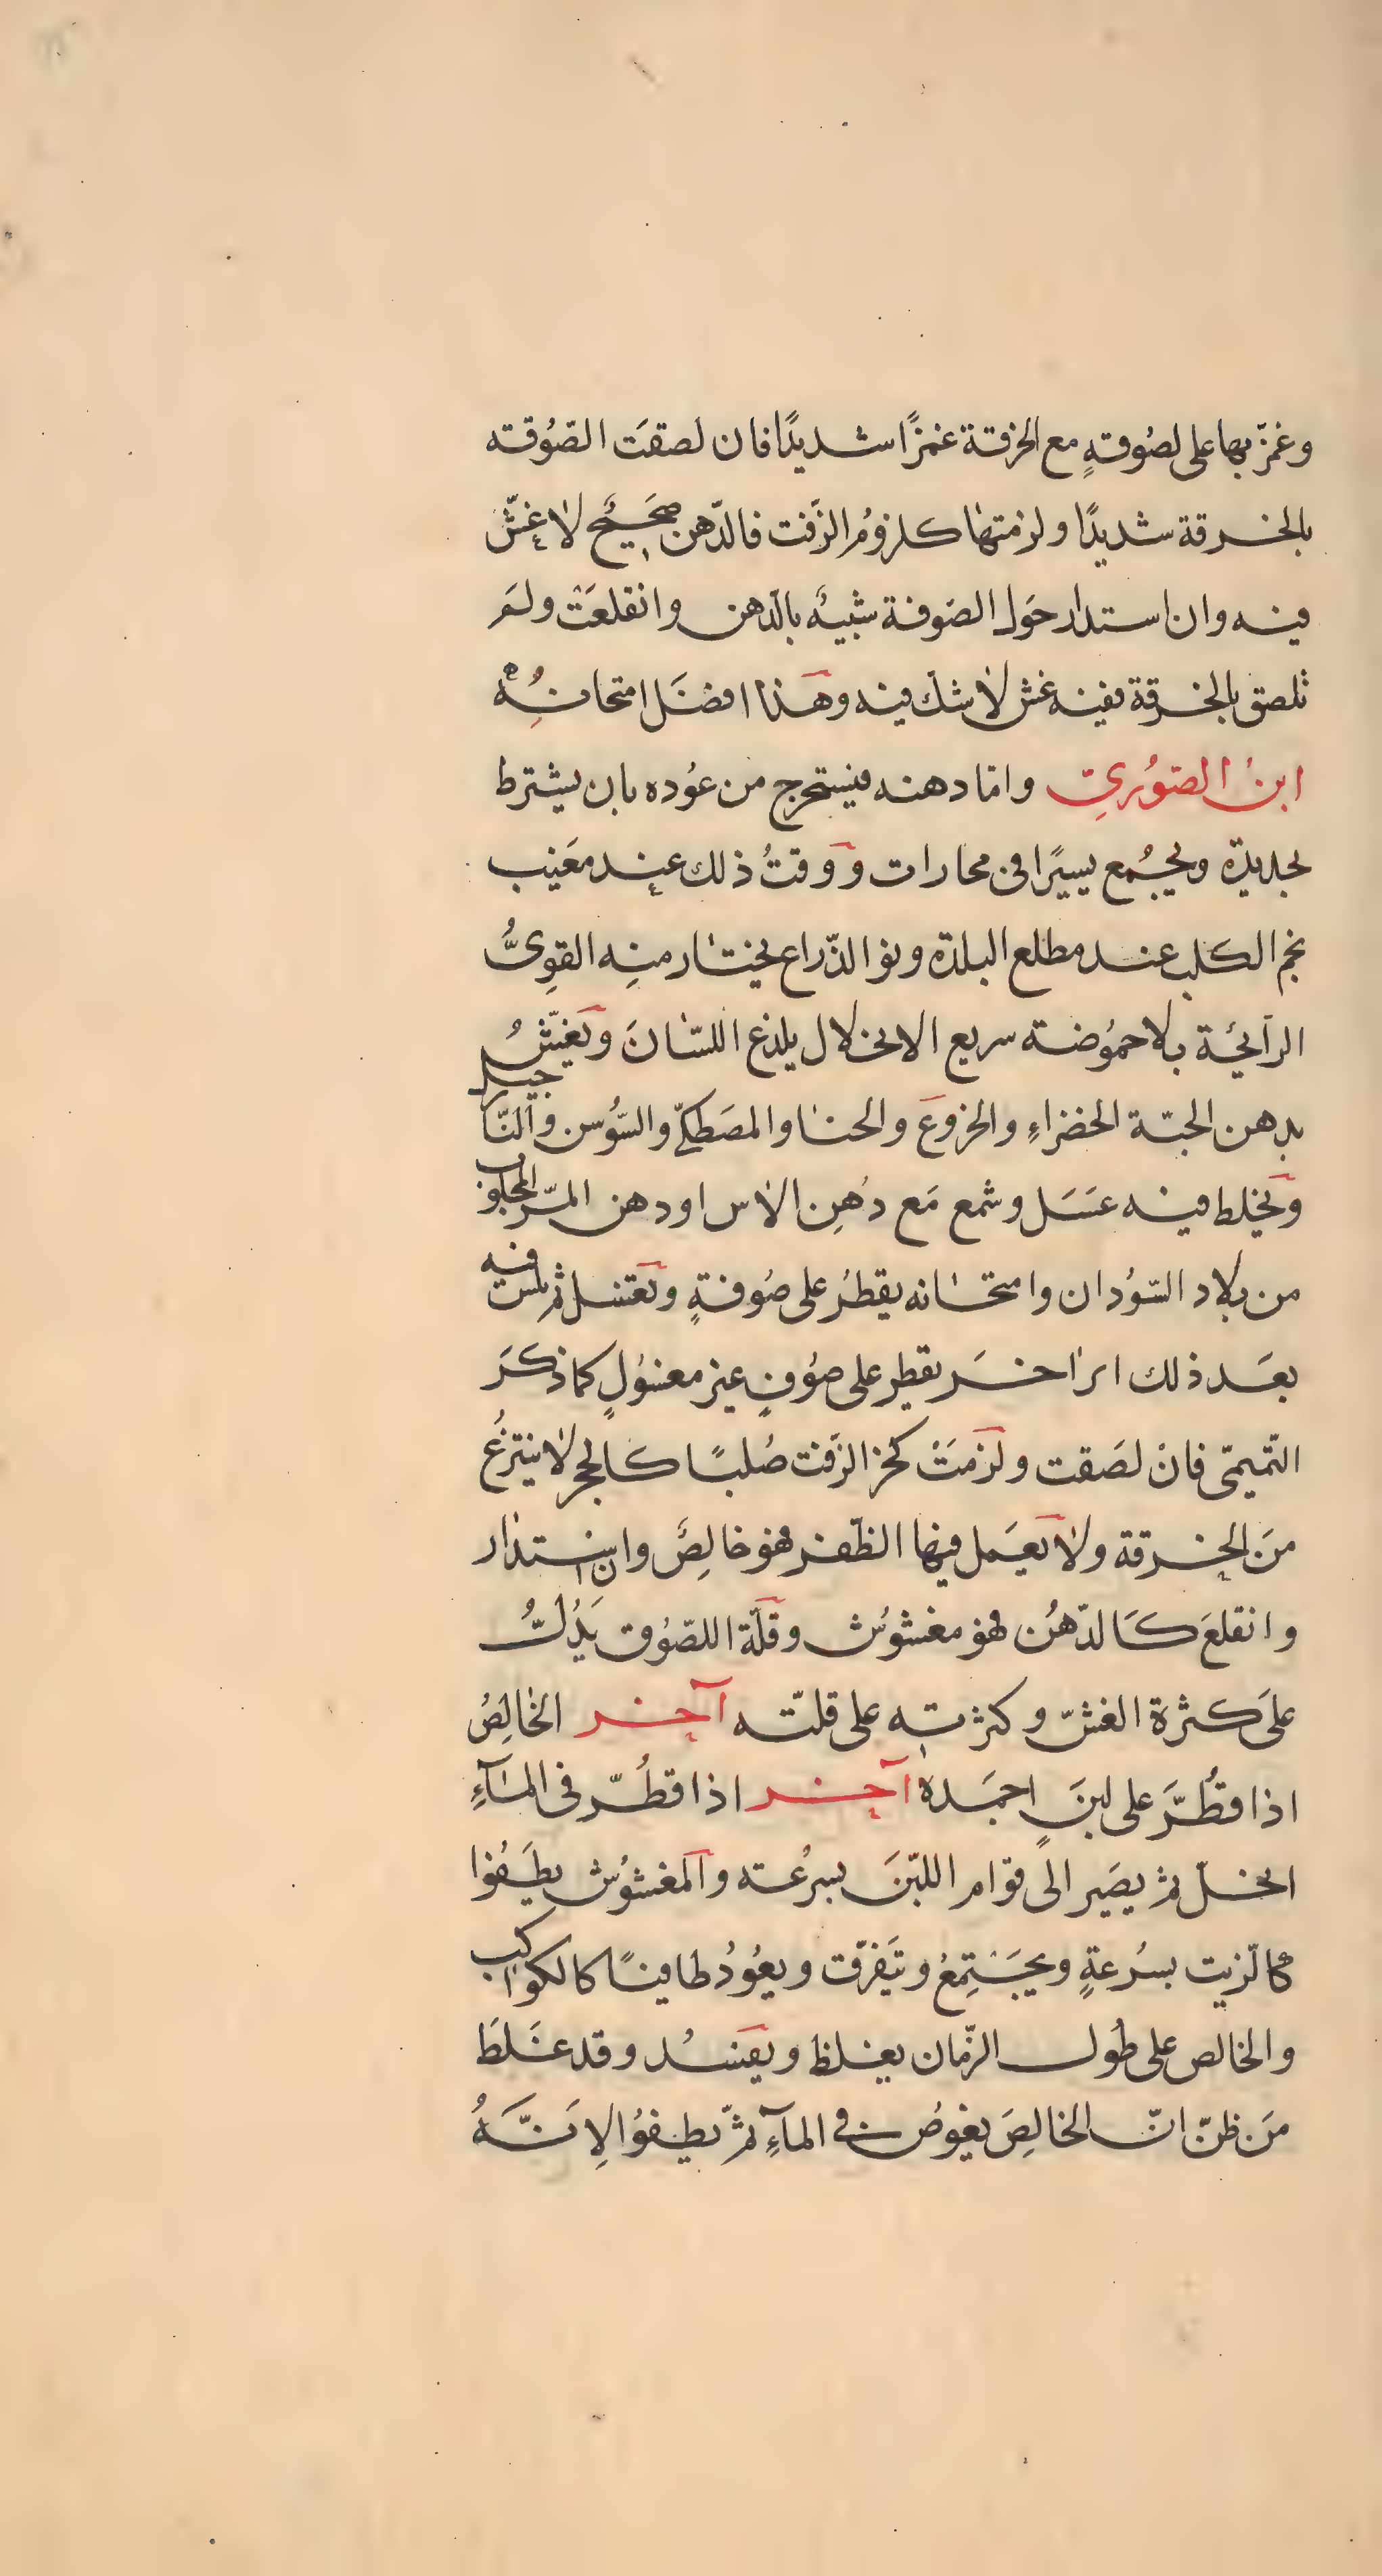 وغمزّ بها على لصُوقةٍ مع الخرقة غمزًا شديدًا فان لصقَت الصّوُقته
بالخرقة شديدًا ولزمتها كلزومُ الزّفت فالدّهن صَحِيحٌ لا غِشّ
فيه وان استدار حَول الصَوفة شبيهٌ بالدّهن وانقلعَتْ ولمَ
تلصق بالخرقة ففيه غش لا شك فيه وهَذا افضَل امتحانِهُ
ابنُ الصّوُريِّ وامّا دهنه فيستخرج من عوُده بان يشترط
بحديدة ويجُمع يسيرًا فى محارات وَوقتُ ذلك عِند مغَيب
نجم الكلب عند مطلع البلدة ونو الذّراع يختار منِه القوِىُّ
الرّايحُة بلا حموُضة سريع الانحلال يلذع اللسّانَ ويَغشُّ
بدهن الحبّة الخضراءِ والخروَع والحنا والمصَطكىّ والسّوُسن والنّاجيل
ويَخلط فيه عسَل وشمع مَع دُهِن الاس او دهن المرّ المجلوب
من بلاد السّوُدان وامتحانه يقطرُ على صُوفةٍ وتَغتسل ثم يلبس فيه
بعَد ذلك اثرا اخَر يقطر على صوُفٍ غير مغسوُلٍ كما ذكرَ
التّميمّى فانْ لصَقت ولَزمَتْ كخز الزّفت صُلبًا كالحجر لا ينتزعُ
منَ الخِرقة ولا يَعَمل فيها الظّفر فهو خالِصٌ وان استدار
وانقلعَ كالدّهُن فهو مغشوُش وقلَّة اللصّوُق يَدُلُّ
علَى كثرة الغشّ وكثرتِه على قلتّه آخِر الخالِصُ
اذا قطُرَّ على لبنٍَ اجمَده آخِر اذا قطُرّ فى المآءِ
انخلّ ثم يصَير الَى قوّام اللبّنَ بسرُعته والمَغشوُش يطِفُوا
كالزّيت بسُرعةٍ ويجَتِمعُ وتَيفرّقت ويعوُدُ طافيًا كالكواكب
والخالص على طُول الزّمان يغلظ ويفَسُد وقد غَلطَ
منَ ظنّ انّ الخالِصَ يغوصُ فى المآءِ ثمّ يطفوُ الاِنَّهُ